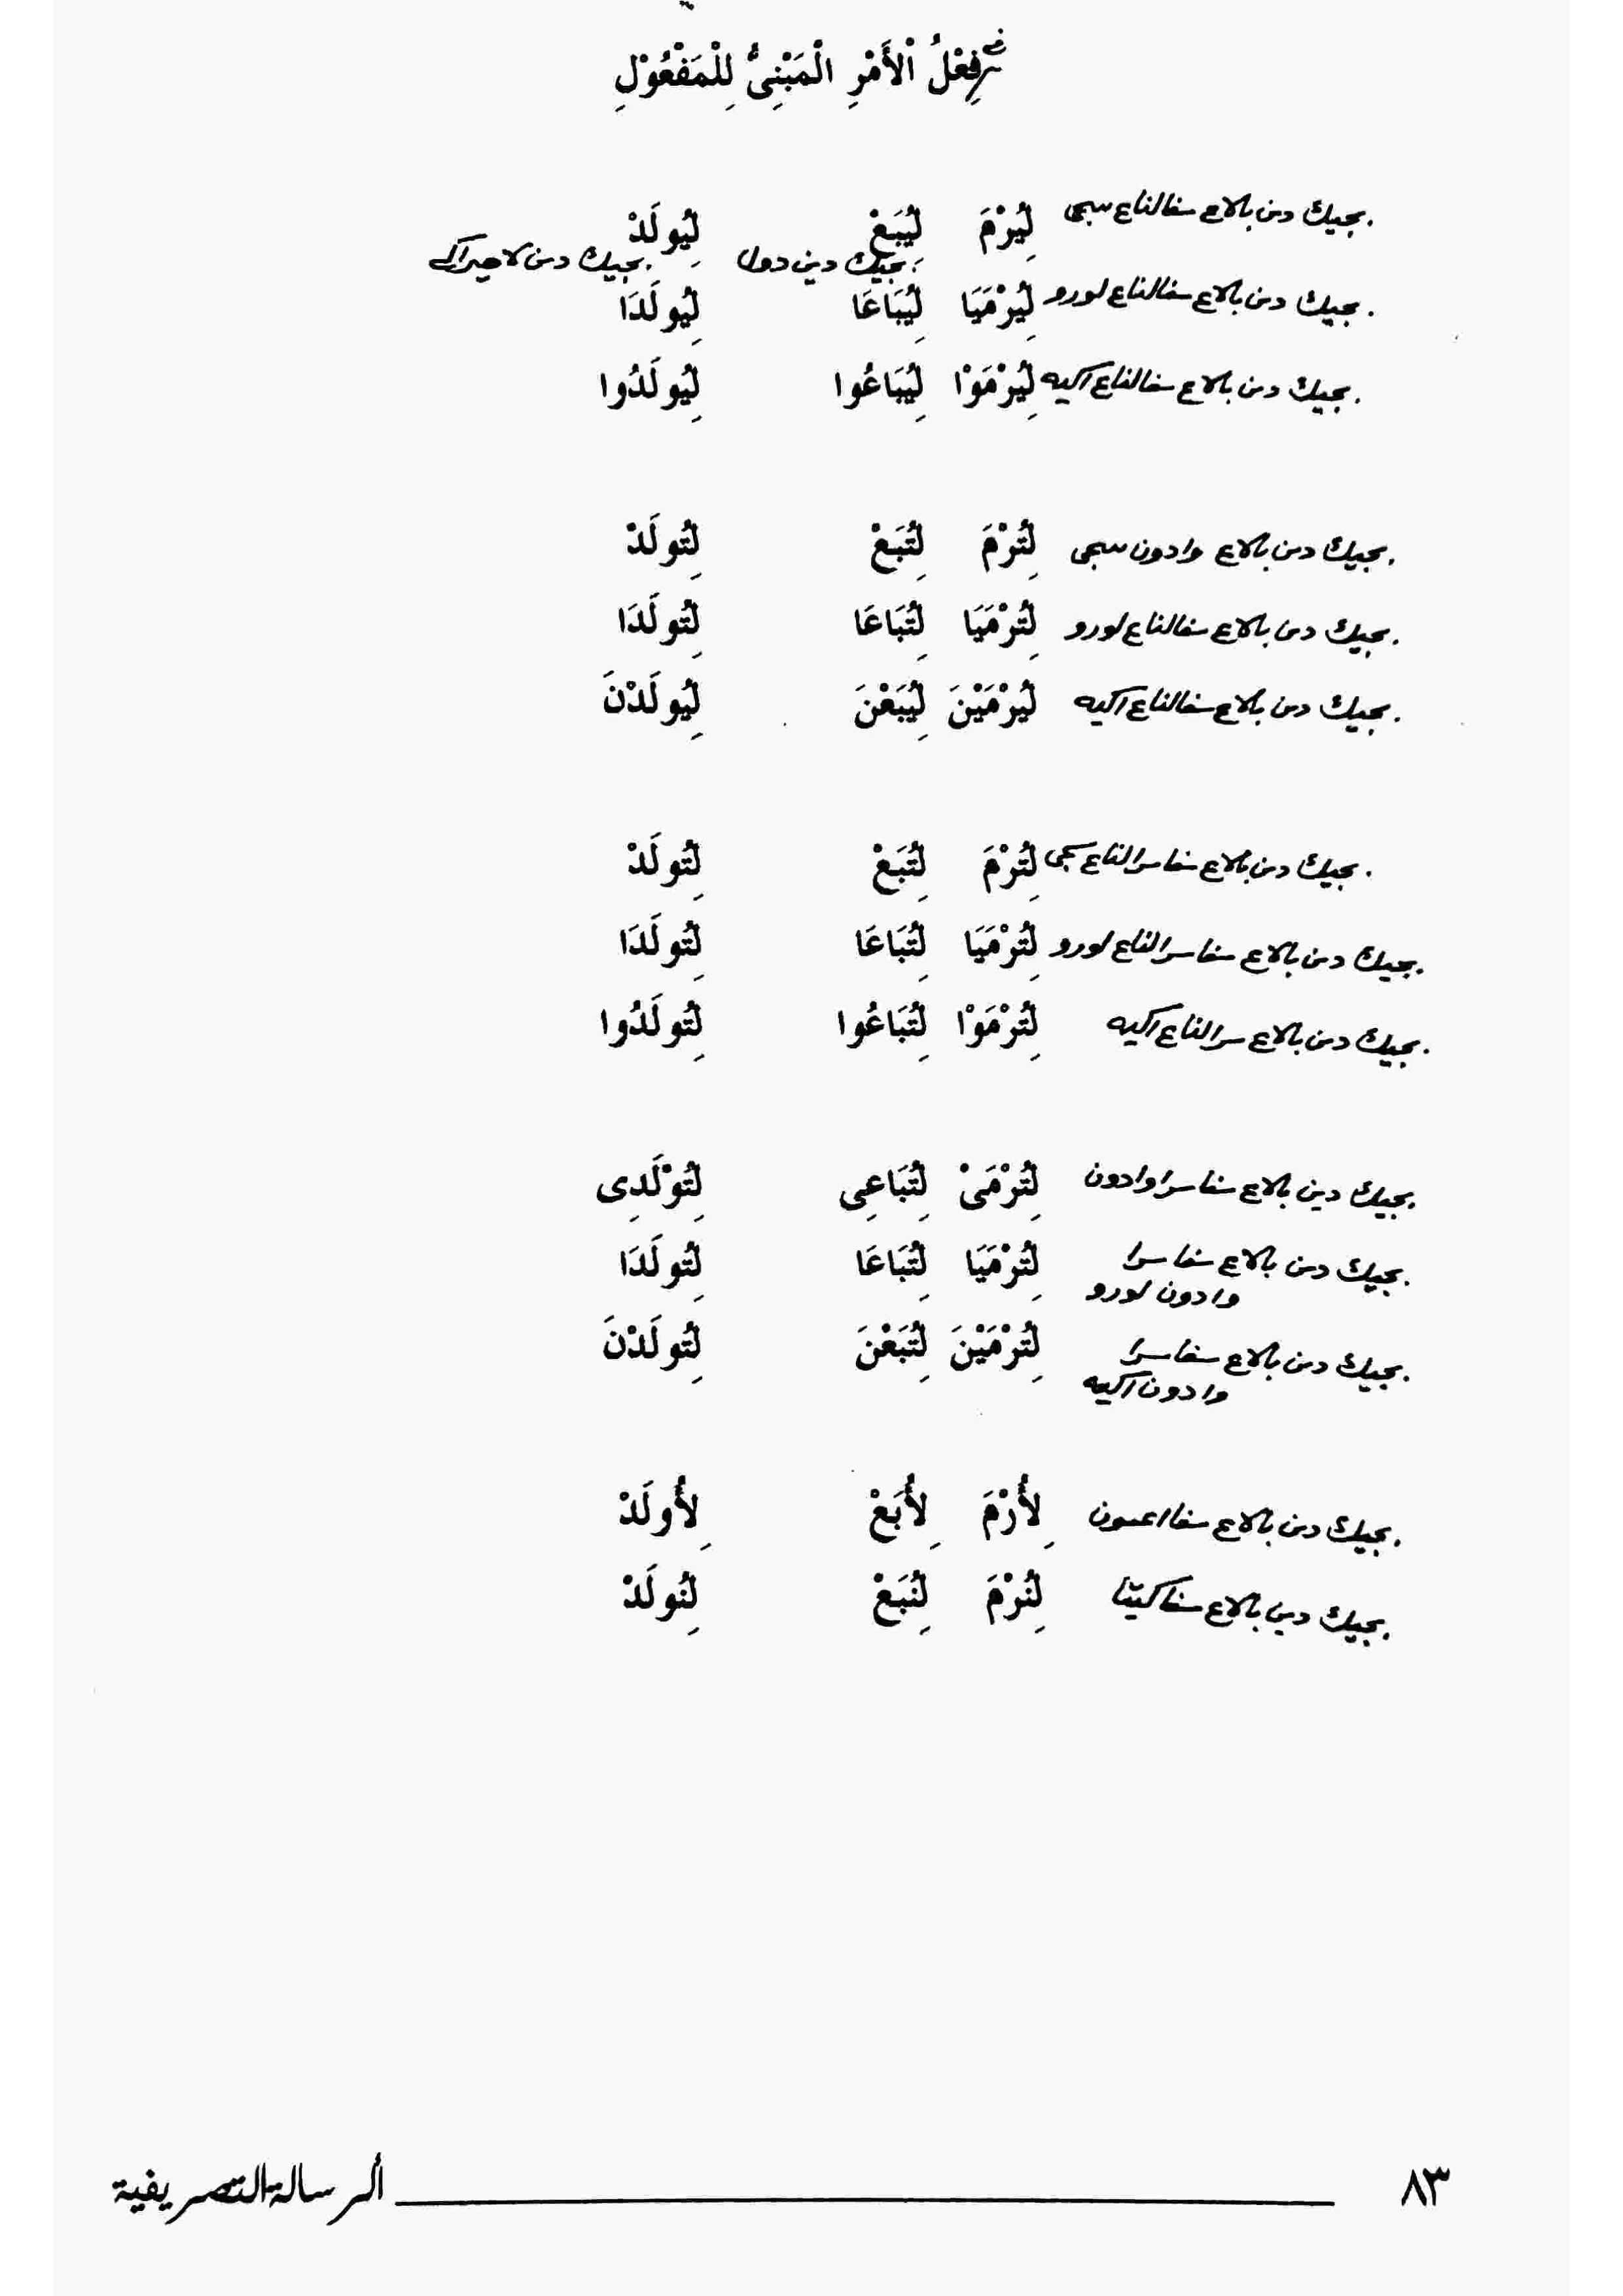 فِعْلُ الْأَمْرِ الْمَبْنِىُّ لِلْمَفْعُوْلِ
. بجيك دين بالاع سفا لناع سجى لِيُرْمَ لِيُبَعْ لِيُولَدْ
. بجيك دين دول . بجيك دين لاهيراكى
. بجيك دين بالاع سفا لناع لورو لِيُرْمَيَا لِيُبَاعَا لِيُولَدَا
. بجيك دين بالاع سفا لناع اكيه لِيُرْمَوْا لِيُبَاعُوا لِيُولَدُوا
. بجيك دين بالاع وادون سجى لِتُرْمَ لِتُبَعْ لِتُولَدْ
. بجيك دين بالاع سفا لناع لورو لِتُرْمَيَا لِتُبَاعَا لِتُولَدَا
. بجيك دين بالاع سفا لناع اكيه لِيُرْمَيْنَ لِيُبَعْنَ لِيُولَدْنَ
. بجيك دين بالاع سفا سرا لناع سجى لِتُرْمَ لِتُبَعْ لِتُولَدْ
. بجيك دين بالاع سفا سرا لناع لورو لِتُرْمَيَا لِتُبَاعَا لِتُولَدَا
. بجيك دين بالاع سرا لناع اكيه لِتُرْمَوْا لِتُبَاعُوا لِتُولَدُوا
. بجيك دين بالاع سفا سرا وادون لِتُرْمَىْ لِتُبَاعِى لِتُوْلَدِى
. بجيك دين بالاع سفا سرا لِتُرْمَيَا لِتُبَاعَا لِتُولَدَا
وادون لورو
. بجيك دين بالاع سفا سرا لِتُرْمَيْنَ لِتُبَعْنَ لِتُولَدْنَ
وادون اكيه
. بجيك دين بالاع سفا اعسون لِأُرْمَ لِأُبَعْ لِأُولَدْ
. بجيك دين بالاع سفا كيتا لِنُرْمَ لِنُبَعْ لِنُولَدْ
٨٣ ألرسالة التصريفية